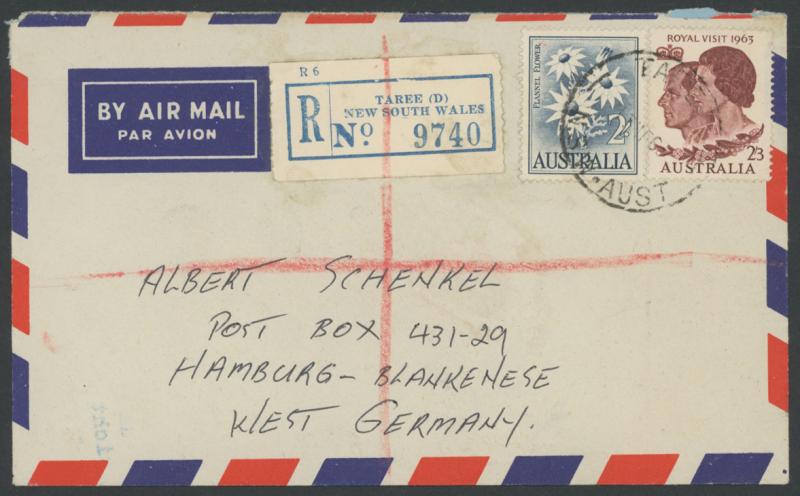 BY AIR MAIL
PAR AVION
R 6
R
TAREE (D)
NEW SOUTH WALES
No 9740
FLANNEL FLOWER
2/-
AUSTRALIA
ROYAL VISIT 1963
2/3
AUSTRALIA
AUST
ALBERT SCHENKEL
POST BOX 431-29
HAMBURG-BLANKENESE
WEST GERMANY.